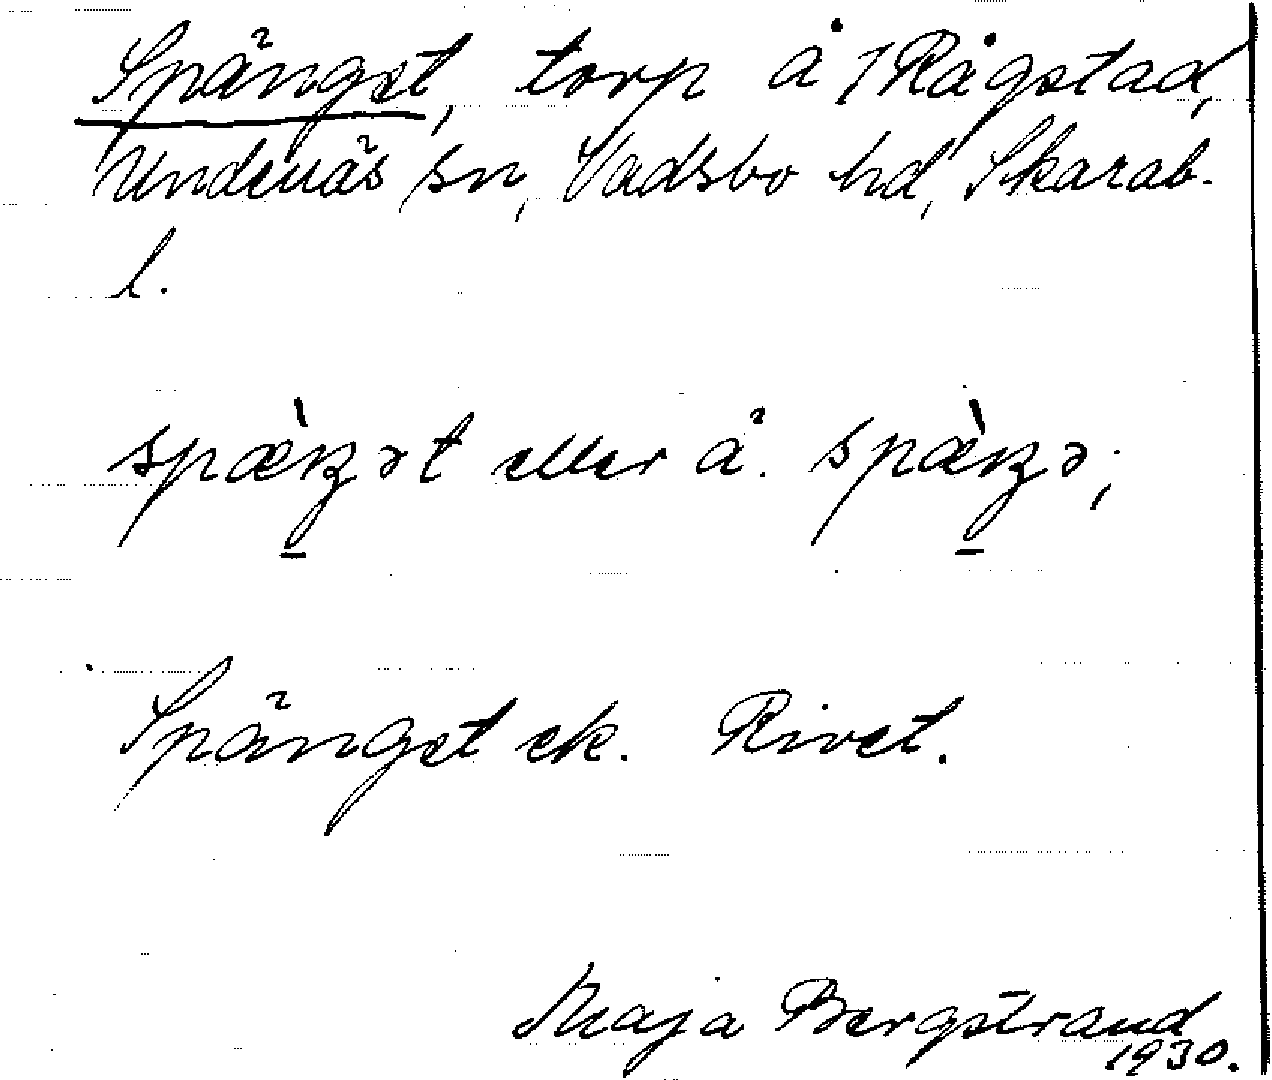 Spänget, torp å 1 Rågstad,
Undenäs sn, Vadsbo hd, Skarab.
l.
spæ̀ŋət eller å. spæ̀ŋə;
Spänget ek. Rivet.
Maja Bergstrand
1930.